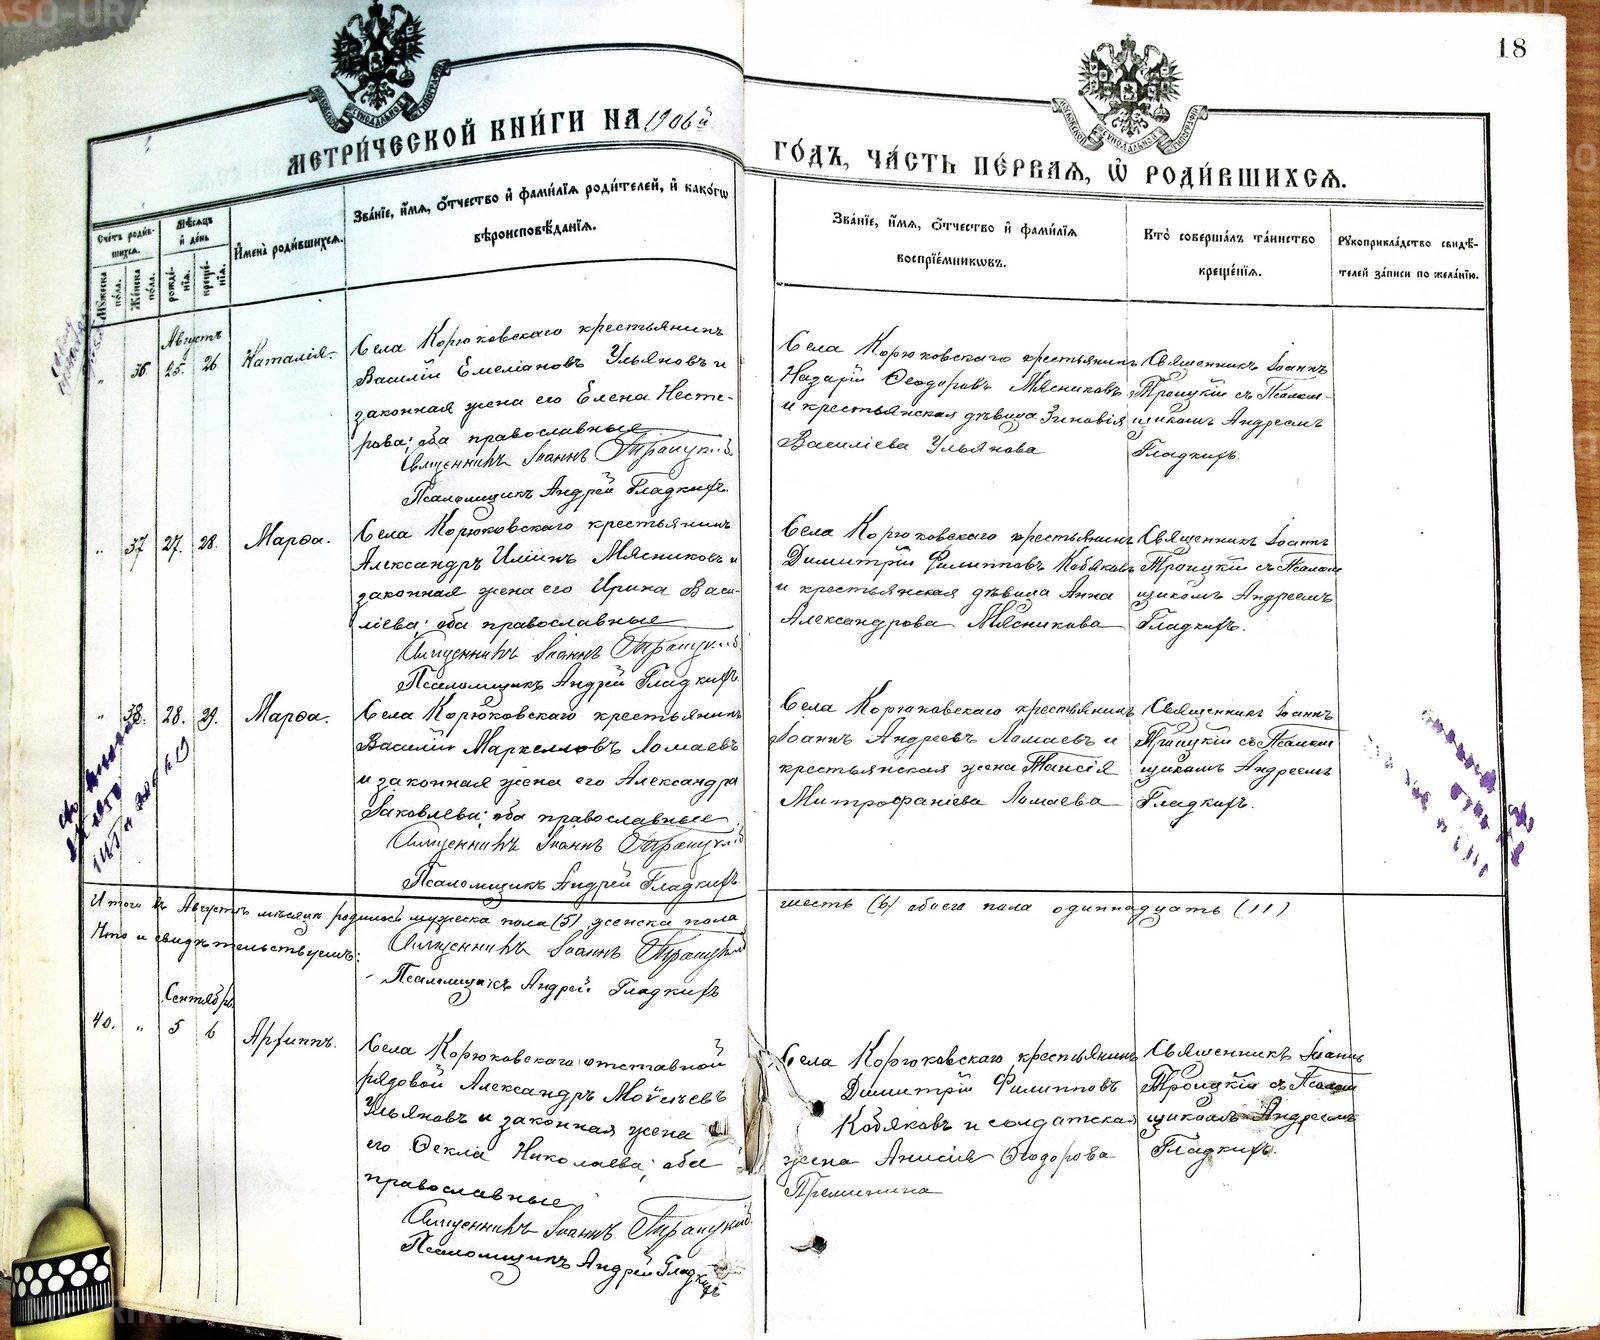 METRIKI.GASO-URAL.RU
18
МЕТРИ́ЧЕСКОЙ КНИ́ГИ НА 1906й
ГО́ДЪ, ЧА́СТЬ ПЕ́РВАЯ, Ѡ РОДИ́ВШИХСЯ.
Сче́тъ роди́в-
шихся.
Му́жеска по́ла.
Же́нска по́ла.
Мѣ́сяцъ
и де́нь
рожде́-
нія.
креще́-
нія.
Имена̀ роди́вшихся.
Зва́ніе, и́мя, о́тчество и фами́лія роди́телей, и како́гѡ
вѣроисповѣ́данія.
Зва́ніе, и́мя, о́тчество и фами́лія
воспріе́мниковъ.
Кто̀ соверша́лъ та́инство
креще́нія.
Рукоприкла́дство свидѣ́-
телей за́писи по жела́нію.
Августъ
" 36 25. 26 Наталія.
Села Корюковскаго крестьянинъ
Василій Емеліановъ Ульяновъ и
законная жена его Елена Несте-
рова; оба православные
Священникъ Іоаннъ Троицкій
Псаломщикъ Андрей Гладкихъ.
Села Корюковскаго крестьянинъ
Назарій Ѳеодоровъ Мясниковъ
и крестьянская дѣвица Зиновія
Василіева Ульянова
Священникъ Іоаннъ
Троицкій съ Псалом-
щикомъ Андреемъ
Гладкихъ.
" 37 27. 28. Марѳа.
Села Корюковскаго крестьянинъ
Александръ Иліинъ Мясниковъ и
законная жена его Ирина Васи-
ліева; оба православные
Священникъ Іоаннъ Троицкій
Псаломщикъ Андрей Гладкихъ.
Села Корюковскаго крестьянинъ
Димитрій Филипповъ Кобяковъ
и крестьянская дѣвица Анна
Александрова Мясникова
Священникъ Іоаннъ
Троицкій съ Псалом
щикомъ Андреемъ
Гладкихъ.
" 38. 28. 29. Марѳа.
Села Корюковскаго крестьянинъ
Василій Маркелловъ Ломаевъ
и законная жена его Александра
Яковлева; оба православные
Священникъ Іоаннъ Троицкій
Псаломщикъ Андрей Гладкихъ.
Села Корюковскаго крестьянинъ
Іоаннъ Андреевъ Ломаевъ и
крестьянская жена Таисія
Митрофаніева Ломаева
Священникъ Іоаннъ
Троицкій съ Псалом
щикомъ Андреемъ
Гладкихъ.
Итого въ Августѣ мѣсяцѣ родилось мужеска пола (5) женска пола
шесть (6) обоего пола одиннадцать (11)
Что и свидѣтельствуемъ:
Священникъ Іоаннъ Троицкій
Псаломщикъ Андрей Гладкихъ
Сентябрь
40. " 5 6 Архиппъ.
Села Корюковскаго отставной
рядовой Александръ Моѵсеевъ
Ульяновъ и законная жена
его Ѳекла Николаева; оба
православные
Священникъ Іоаннъ Троицкій
Псаломщикъ Андрей Гладкихъ
Села Корюковскаго крестьянинъ
Димитрій Филипповъ
Кобяковъ и солдатская
жена Анисія Ѳеодорова
Священникъ Іоаннъ
Троицкій съ Псалом
щикомъ Андреемъ
Гладкихъ.